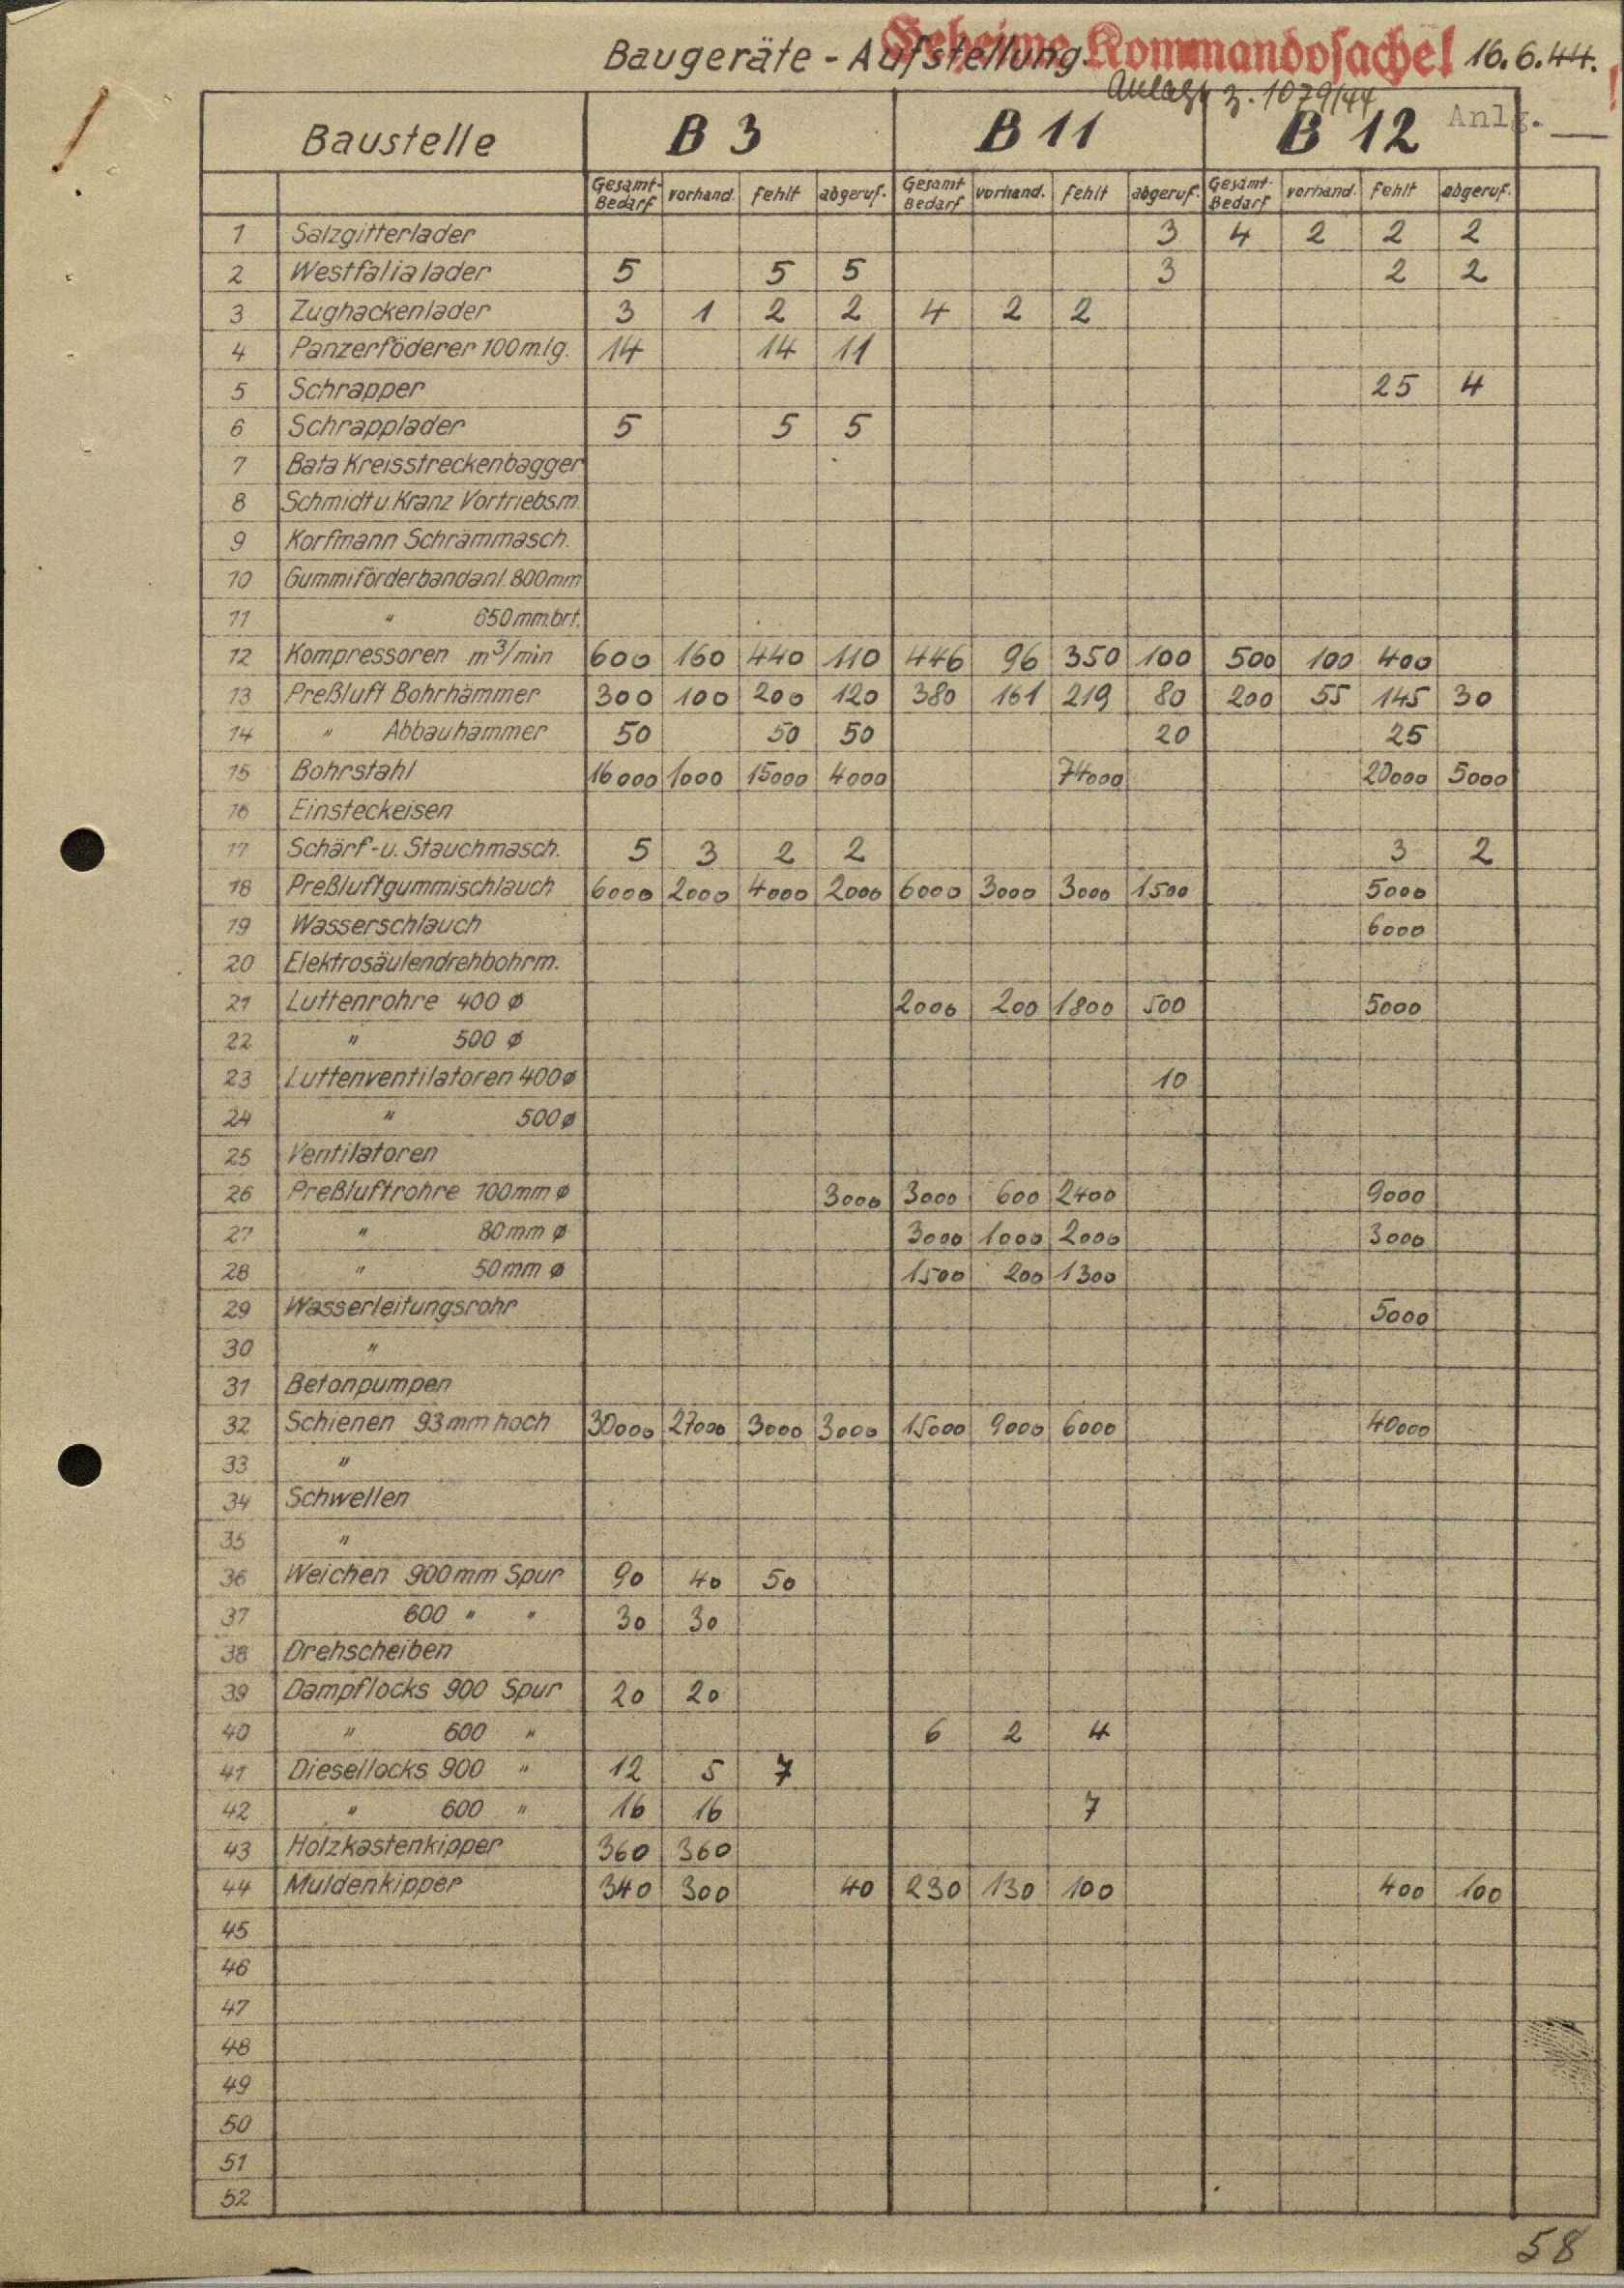 Geheime Kommandosache!
Baugeräte - Aufstellung. 16.6.44.
Anlage z. 1079/44
Anlg.
Baustelle B 3 B 11 B 12
Gesamt-Bedarf vorhand. fehlt abgeruf. Gesamt Bedarf vorhand. fehlt abgeruf. Gesamt-Bedarf vorhand. fehlt abgeruf.
1 Salzgitterlader 3 4 2 2 2
2 Westfalialader 5 5 5 3 2 2
3 Zughackenlader 3 1 2 2 4 2 2
4 Panzerföderer 100m.lg. 14 14 11
5 Schrapper 25 4
6 Schrapplader 5 5 5
7 Bata Kreisstreckenbagger
8 Schmidt u. Kranz Vortriebsm.
9 Korfmann Schrämmasch.
10 Gummiförderbandanl. 800mm
11 " 650mm.brt.
12 Kompressoren m³/min 600 160 440 110 446 96 350 100 500 100 400
13 Preßluft Bohrhämmer 300 100 200 120 380 161 219 80 200 55 145 30
14 " Abbauhämmer 50 50 50 20 25
15 Bohrstahl 16000 1000 15000 4000 74000 20000 5000
16 Einsteckeisen
17 Schärf-u. Stauchmasch. 5 3 2 2 3 2
18 Preßluftgummischlauch 6000 2000 4000 2000 6000 3000 3000 1500 5000
19 Wasserschlauch 6000
20 Elektrosäulendrehbohrm.
21 Luttenrohre 400 ø 2000 200 1800 500 5000
22 " 500 ø
23 Luttenventilatoren 400ø 10
24 " 500ø
25 Ventilatoren
26 Preßluftrohre 100mm ø 3000 3000 600 2400 9000
27 " 80mm ø 3000 1000 2000 3000
28 " 50mm ø 1500 200 1300
29 Wasserleitungsrohr 5000
30 "
31 Betonpumpen
32 Schienen 93mm hoch 30000 27000 3000 3000 15000 9000 6000 40000
33 "
34 Schwellen
35 "
36 Weichen 900mm Spur 90 40 50
37 600 " " 30 30
38 Drehscheiben
39 Dampflocks 900 Spur 20 20
40 " 600 " 6 2 4
41 Diesellocks 900 " 12 5 7
42 " 600 " 16 16 7
43 Holzkastenkipper 360 360
44 Muldenkipper 340 300 40 230 130 100 400 100
45
46
47
48
49
50
51
52
58